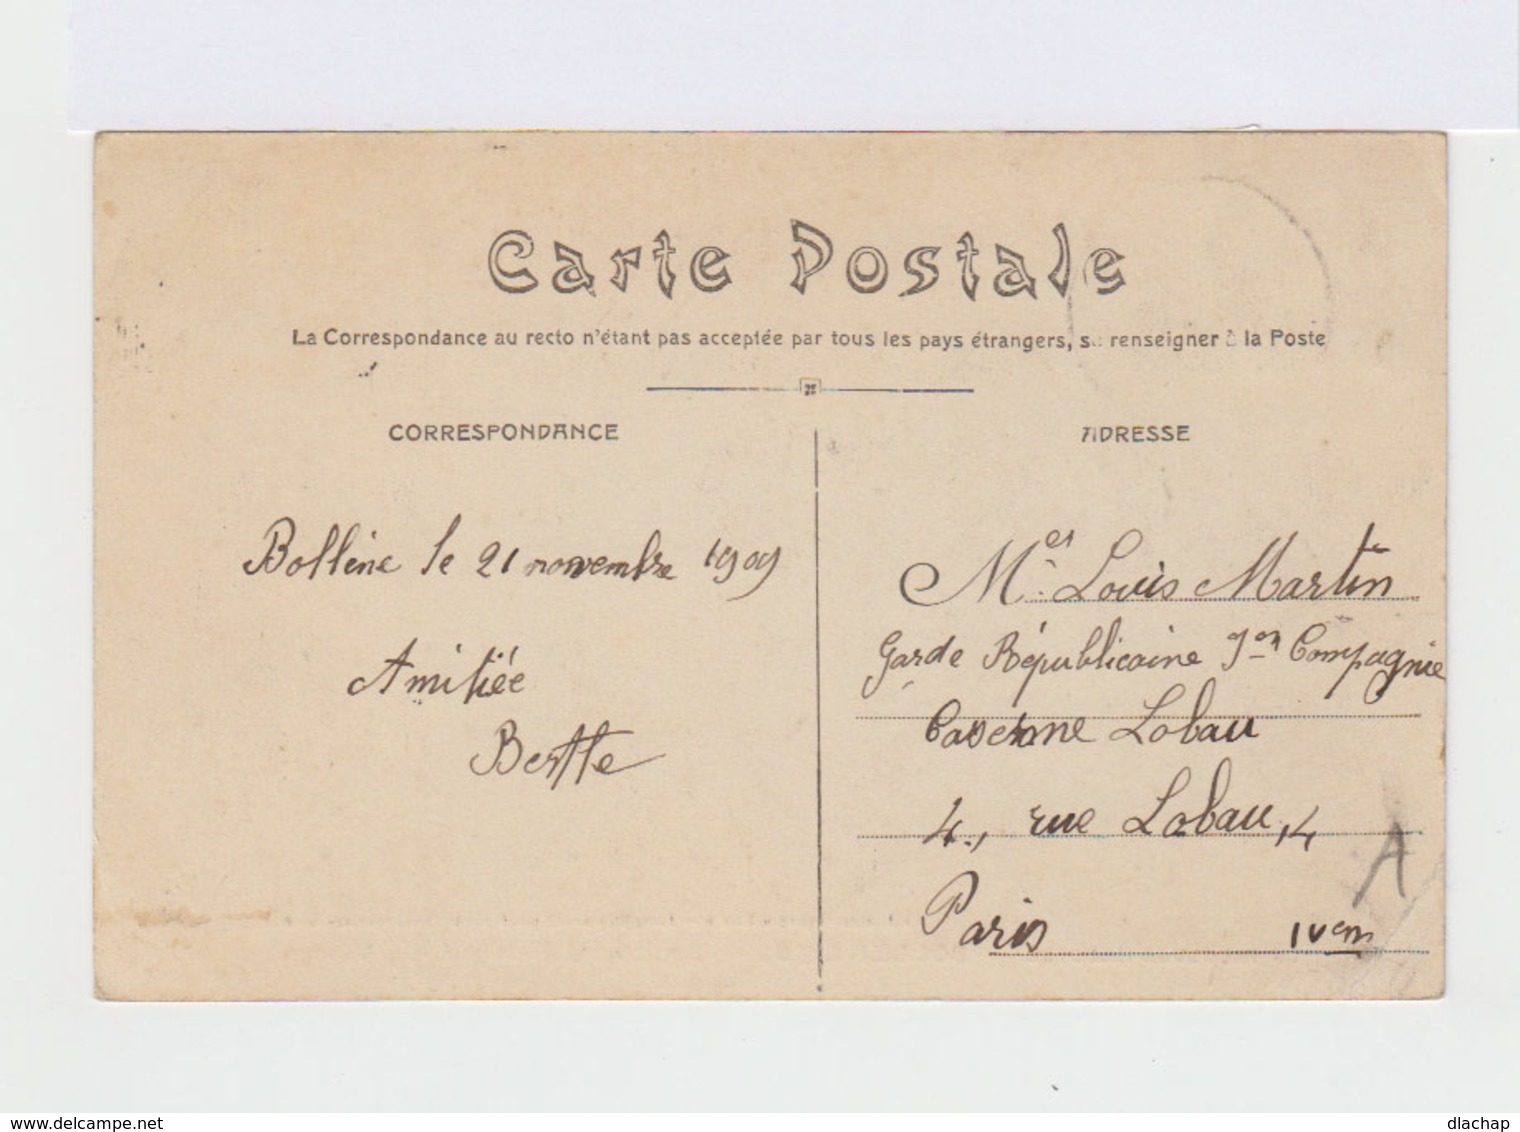 Carte Postale
La Correspondance au recto n'étant pas acceptée par tous les pays étrangers, se renseigner à la Poste
CORRESPONDANCE
ADRESSE
Bollène le 21 novembre 1909
Amitiée
Berthe
Mr Louis Martin
Garde Républicaine Compagnie
Caserne Lobau
4, rue Lobau, 4
Paris IVem
A
www.delcampe.net
dlachap